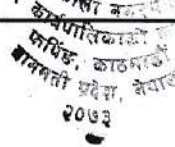 कार्यपालिकाको
फर्पिङ, काठमाडौं
बागमती प्रदेश, नेपाल
२०७३